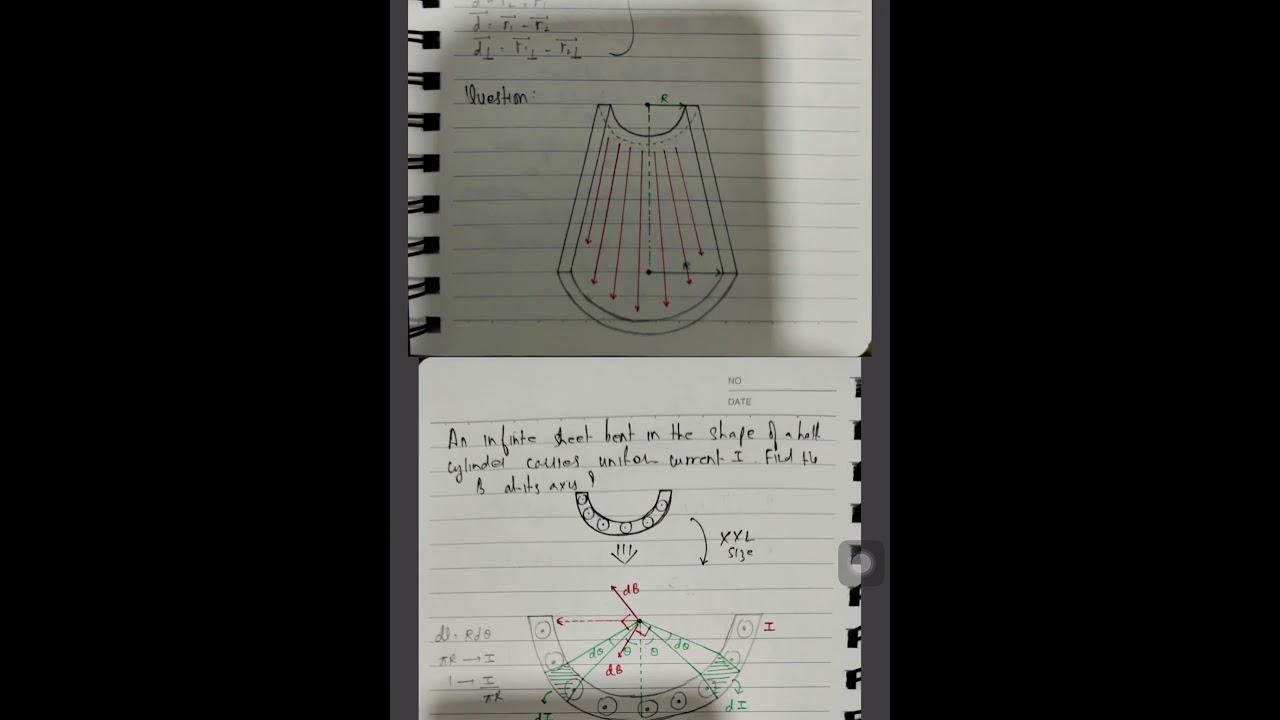 d = r₂ - r₁
d = r₁ - r₂
d⊥ = r₁⊥ - r₂⊥
Question:
R
R
NO
DATE
An infinite sheet bent in the shape of a half
cylinder carries uniform current I. Find the
B at its axis?
XXL
Size
dB
I
dl = Rdθ
dθ θ θ dθ
πR → I
dB
1 → I/πR
dI dI